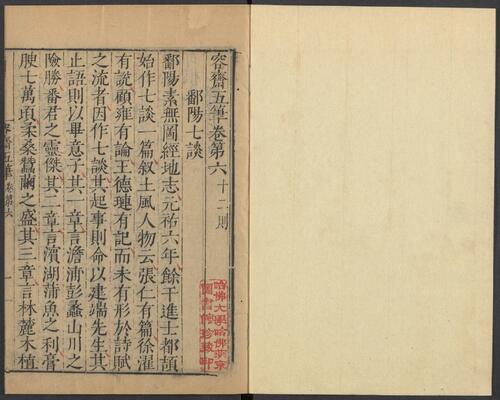 容齋五筆卷第六 十二則
鄱陽七談
鄱陽素無圖經地志元祐六年餘干進士都頡
始作七談一篇叙土風人物云張仁有篇徐濯
有說顧雍有論王德璉有記而未有形於詩賦
之流者因作七談其起事則命以建端先生其
止語則以畢意子其一章言澹浦彭蠡山川之
險勝番君之靈傑其二章言濱湖蒲魚之利膏
腴七萬頃柔桑蠶繭之盛其三章言林麓木植
容齋五筆 卷第六
一
哈佛大學哈佛燕京
圖書館珍藏印